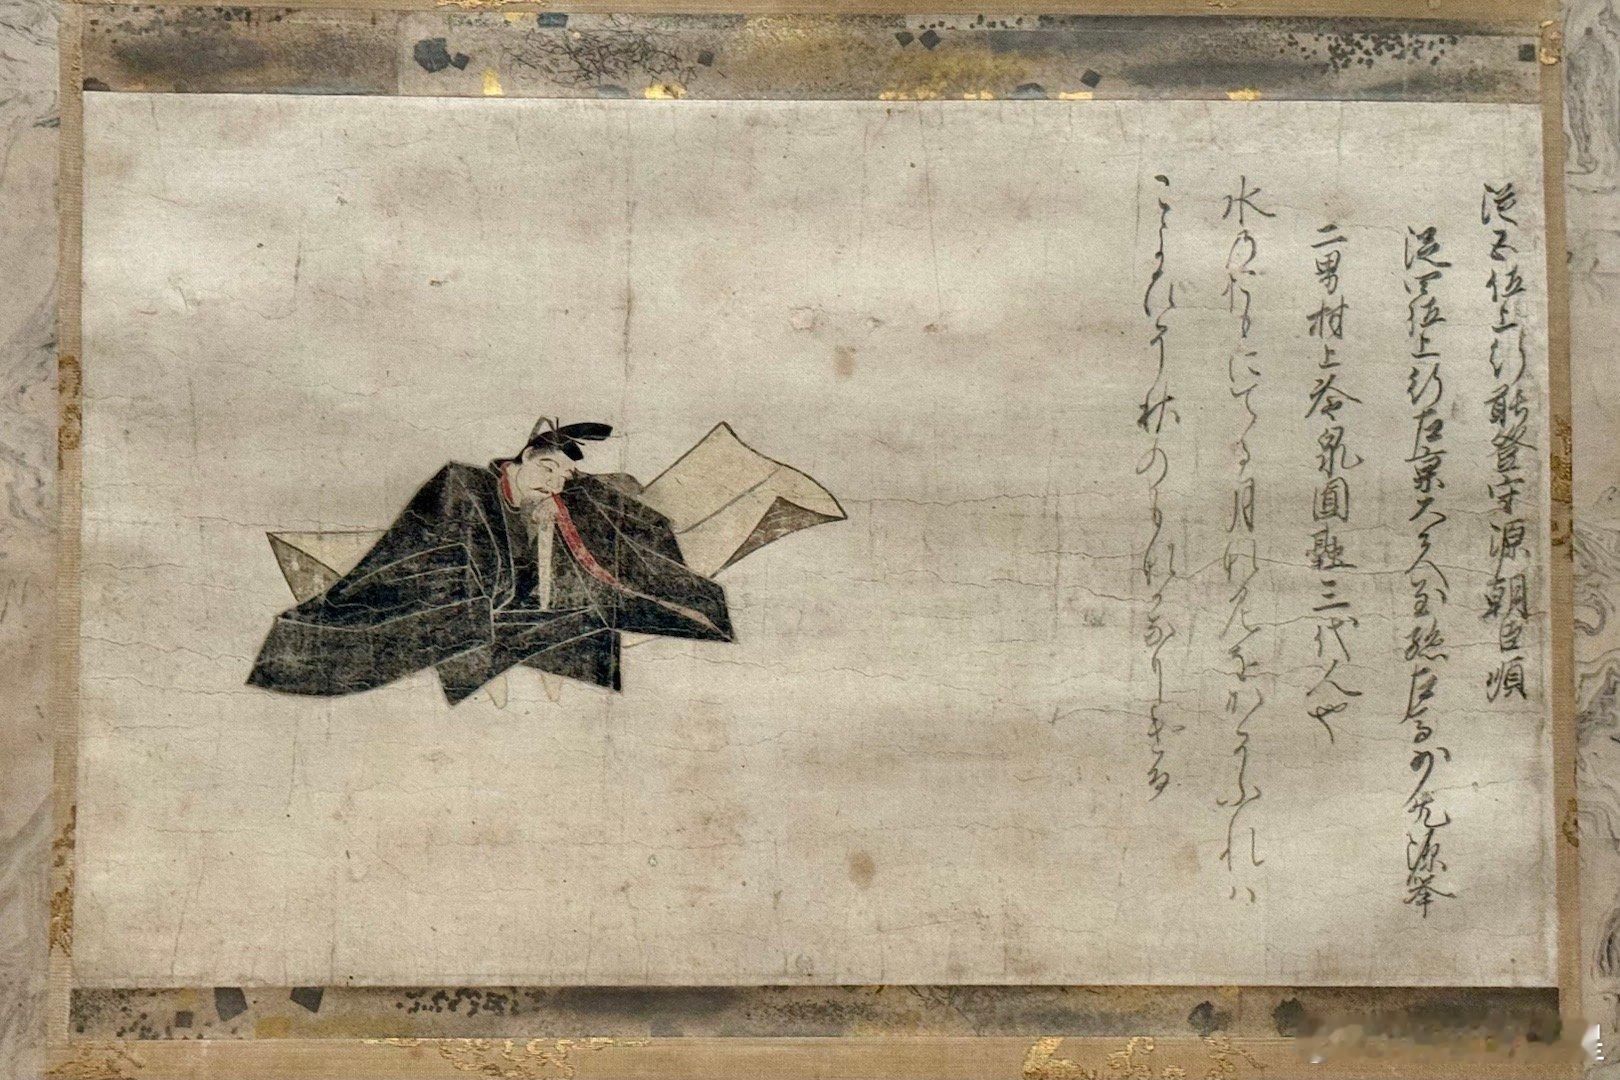 従五位上行能登守源朝臣順
従四位上行左京大夫至孫左馬少允源挙
二男村上冷泉圓融三代人也
水のおもにてる月なみをかそふれハ
こよひそ秋のもなかなりける